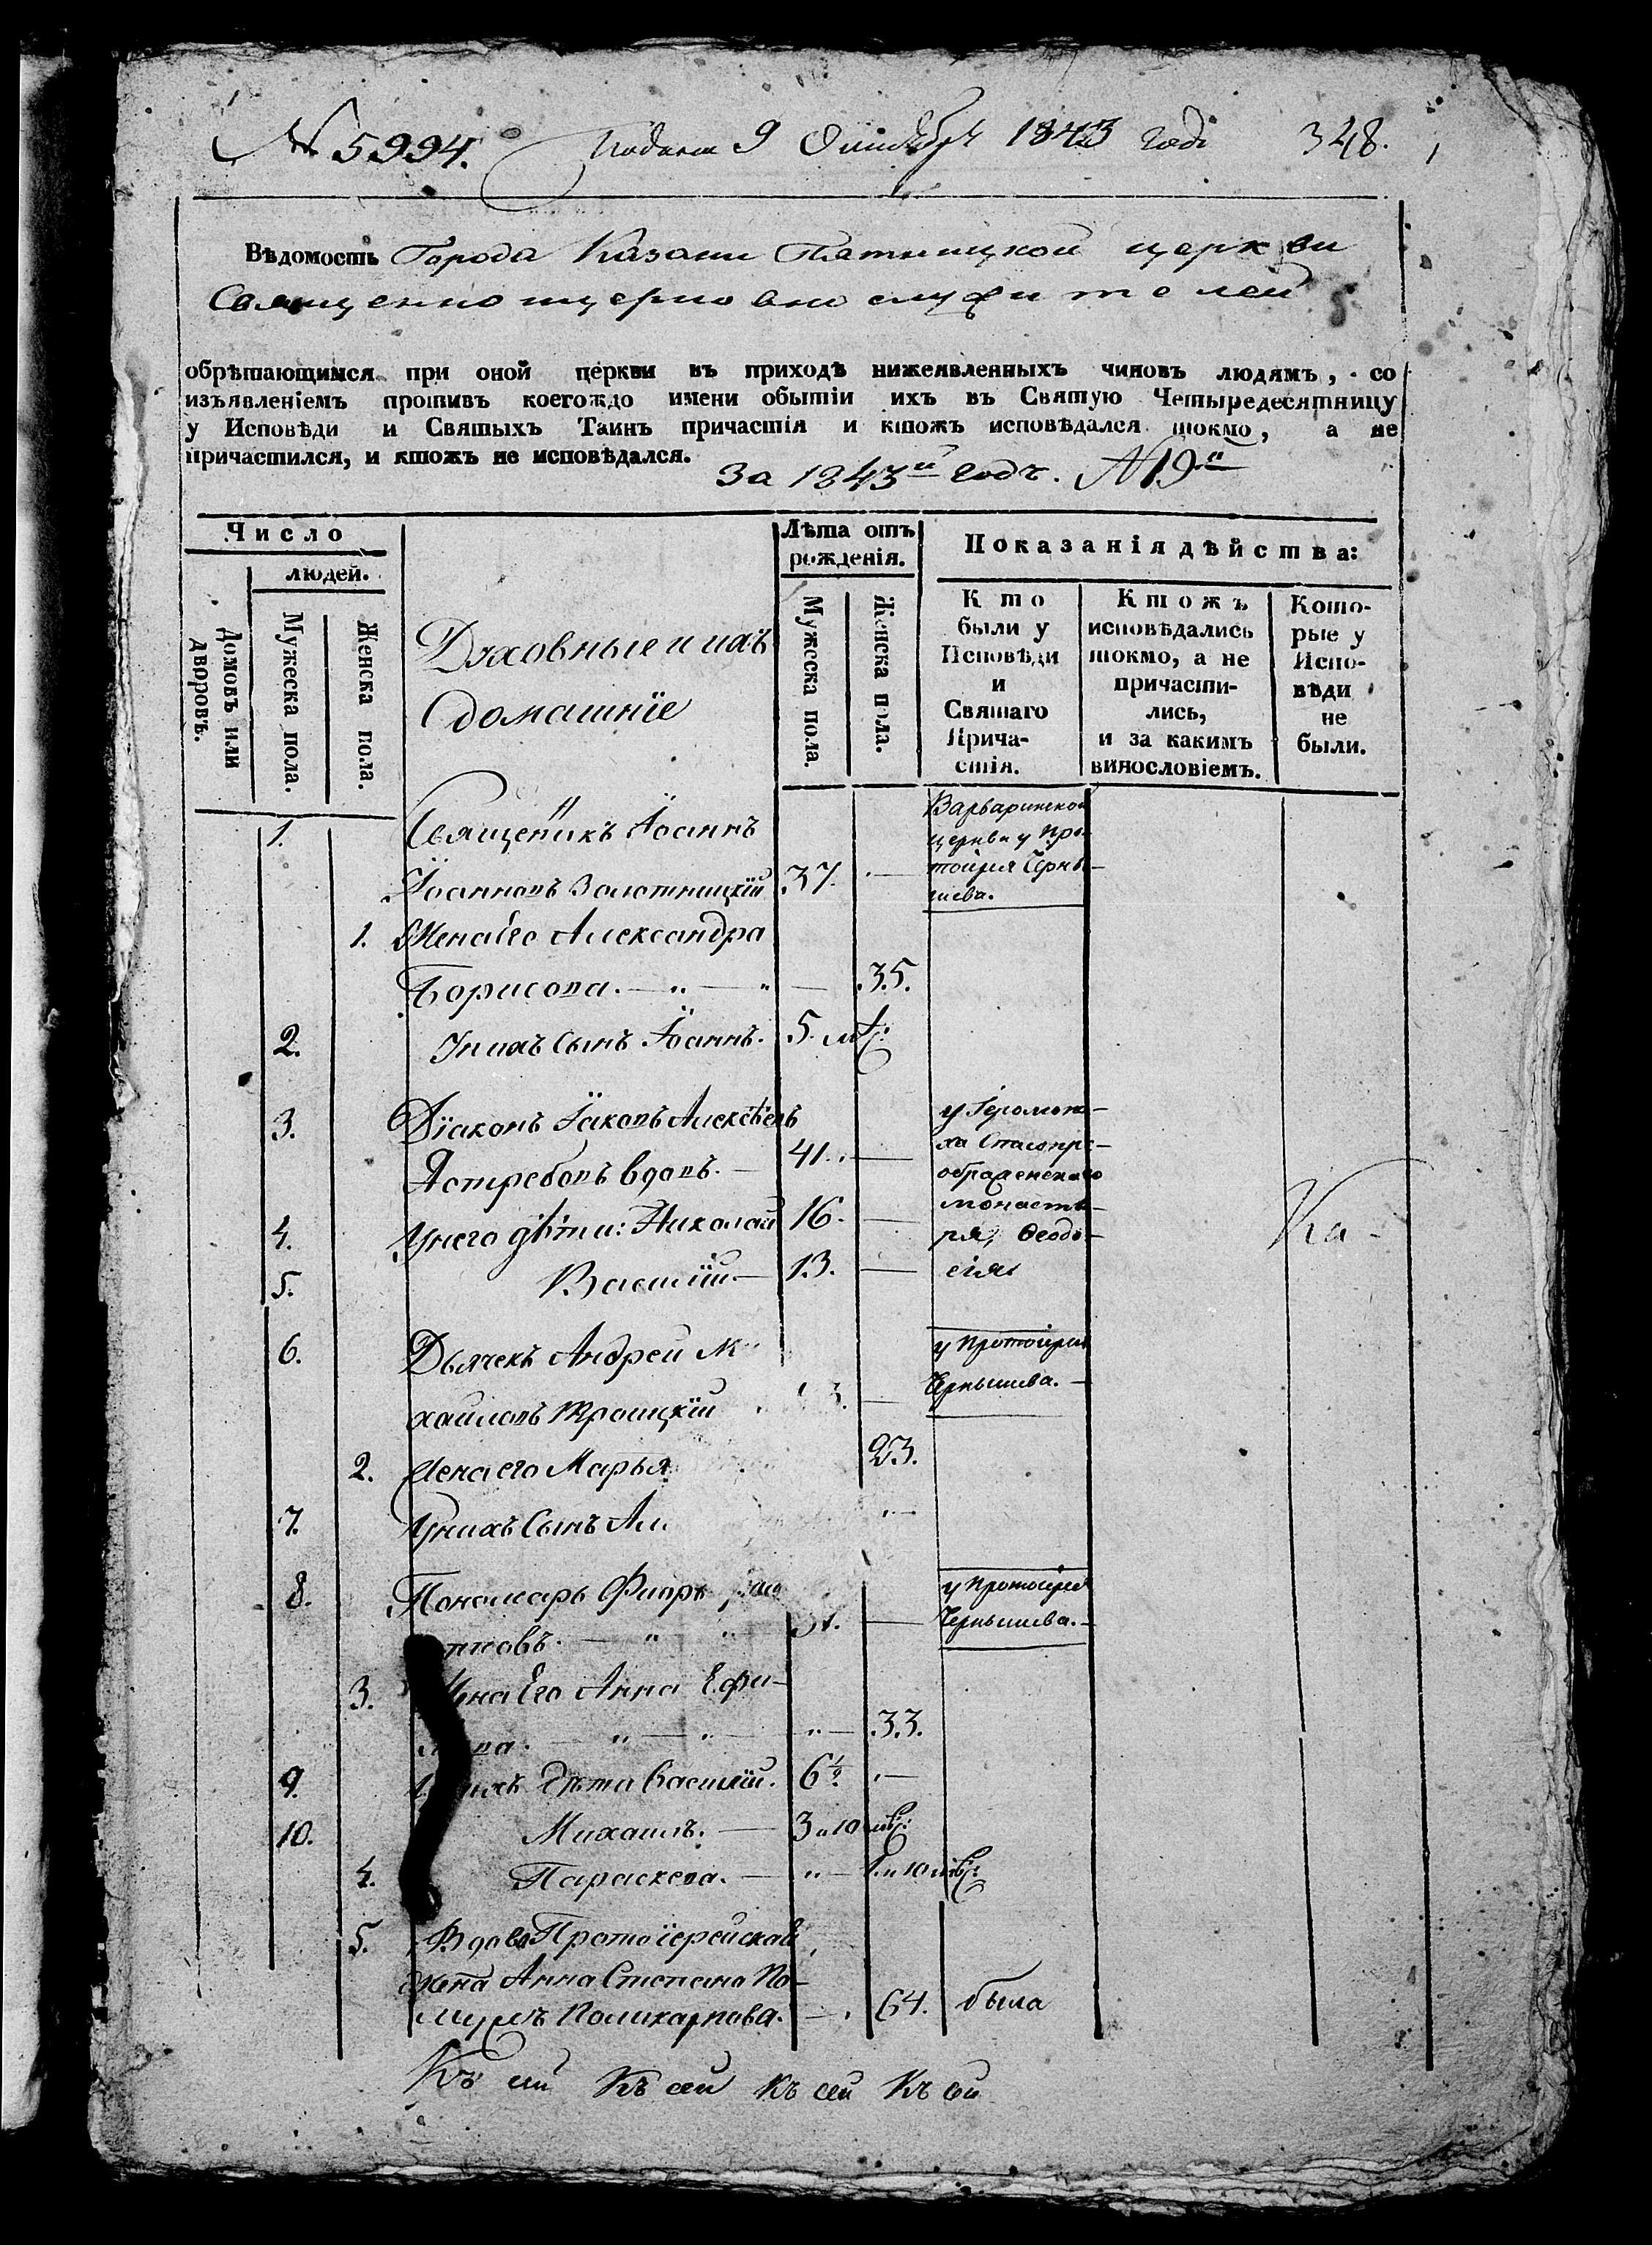 № 5994. Подана 9 Октября 1843 года 348.
Вѣдомость Города Казани Пятницкой церкви
Священноцерковнослужителей
обрѣтающимся при оной церкви въ приходѣ нижеявленныхъ чиновъ людямъ, со
изъявленіемъ противъ коегождо имени обытіи ихъ въ Святую Четыредесятницу
у Исповѣди и Святыхъ Таинъ причастія и ктожъ исповѣдался токмо, а не
причастился, и ктожъ не исповѣдался.
За 1843й годъ. №19й
Число
людей.
Домовъ или дворовъ.
Мужеска пола.
Женска пола.
Духовные и ихъ
домашніе
Лѣта отъ
рожденія.
Мужеска пола.
Женска пола.
Показанія дѣйства:
Кто
были у
Исповѣди
и
Святаго
Прича-
стія.
Ктожъ
исповѣдались
токмо, а не
причасти-
лись,
и за какимъ
винословіемъ.
Кото-
рые у
Испо-
вѣди
не
были.
1. Священникъ Іоаннъ
Іоанновъ Золотницкій 37. —
Варваринской
церкви у Про-
тоіерея Черны-
шева.
1. Жена его Александра
Борисова. — 35.
2. У нихъ сынъ Іоаннъ. 5. мѣ:
3. Діаконъ Іаковъ Алексѣевъ
Ястребовъ вдовъ. — 41. —
4. У него дѣти: Николай 16. —
5. Василій — 13. —
у Іеромона-
ха Спасопре-
ображенскаго
монасты-
ря, Ѳеодо-
сія
Ка-
6. Дьячекъ Андрей М
хайловъ Троицкій
у Протоіерея
Чернышева. —
2. Жена его Марья 23.
7. У нихъ сынъ Ал
8. Пономарь
у Протоіерея
Чернышева. —
3. Жена Его Анна Ефи-
33.
9. дѣти Василій. 6½ —
10. Михаилъ. — 3 и 10 мѣ:
4. Параскева. — 1. и 10 мѣ:
5. Вдова Протоіерейская
жена Анна Степана По
мужѣ Поликарпова. — 64. была
Къ сей Къ сей Къ сей Къ сей